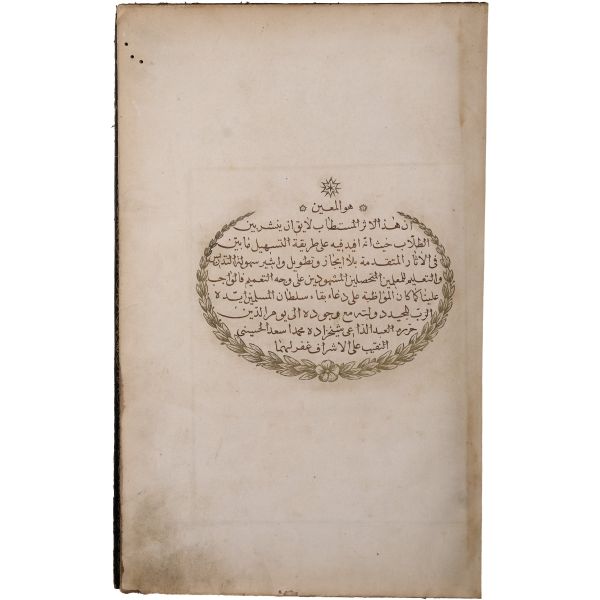 هو المعين
ان هذا الاثر المستطاب لايق ان ينشر بين
الطلاب حيث انه افيد فيه على طريقة التسهيل فما بين
فى الآثار المتقدمة بلا ايجاز وتطويل واشير سهولة التدريس
والتعليم للمعلمين المحصلين المشهودين على وجه التعميم فالواجب
علينا كما كان المواظبة على دعاء بقاء سلطان المسلمين ايده
الرب المجيد دولته مع وجوده الى يوم الدين
حرره العبد الداعى شيخزاده محمد اسعد الحسينى
النقيب على الاشراف غفر لهما